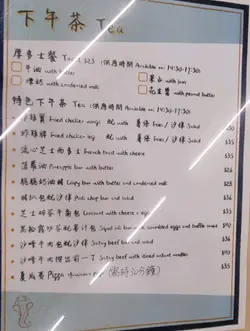 下午茶 Tea
摩多士餐 Toast $23 (供應時間 Available on: 14:30-17:30)
牛油 with butter
果占 with jam
煉奶 with condensed milk
花生醬 with peanut butter
特色下午茶 Tea (供應時間 Available on: 14:30-17:30)
炸雞翼 Fried chicken wings 配 with 薯條 Fries / 沙律 Salad $35
炸雞 Fried chicken 配 with 薯條 Fries / 沙律 Salad $35
流心芝士西多士 French toast with cheese $35
菠蘿油 Pineapple bun with butter
脆脆奶油豬 Crispy bun with butter and condensed milk
豬扒包配沙律 Pork chop bun and salad $36
芝士碎牛包 with cheese
with scrambled eggs and truffle sauce $40
沙嗲牛肉包配沙律 Satay beef bun and salad $36
沙嗲牛肉撈出前一丁 Satay beef with dried instant noodles $35
夏威夷 Pizza Hawaiian (需時10分鐘) $35